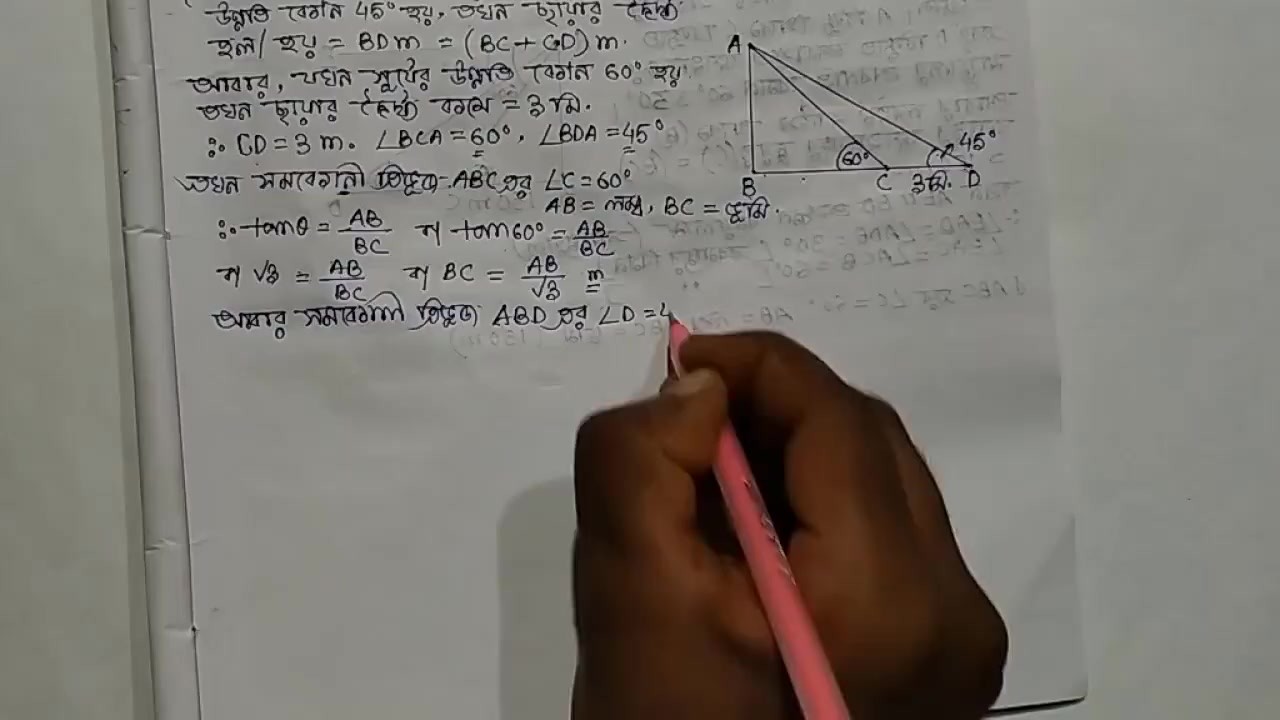 উন্নতি কোন 45° হয়, তখন ছায়ার দৈর্ঘ্য
হল/ হয় = BD m = (BC + CD) m.
আবার, যখন সূর্যের উন্নতি কোন 60° হয়
তখন ছায়ার দৈর্ঘ্য কমে = 3 মি.
∴ CD = 3 m. ∠BCA = 60°, ∠BDA = 45°
তখন সমকোণী ত্রিভুজ ABC এর ∠C = 60°
AB = লম্ব, BC = ভূমি.
∴ tanθ = AB/BC বা tan60° = AB/BC
বা √3 = AB/BC বা BC = AB/√3 m
আবার সমকোণী ত্রিভুজ ABD এর ∠D = 4
A
60°
45°
B
C
3মি.
D